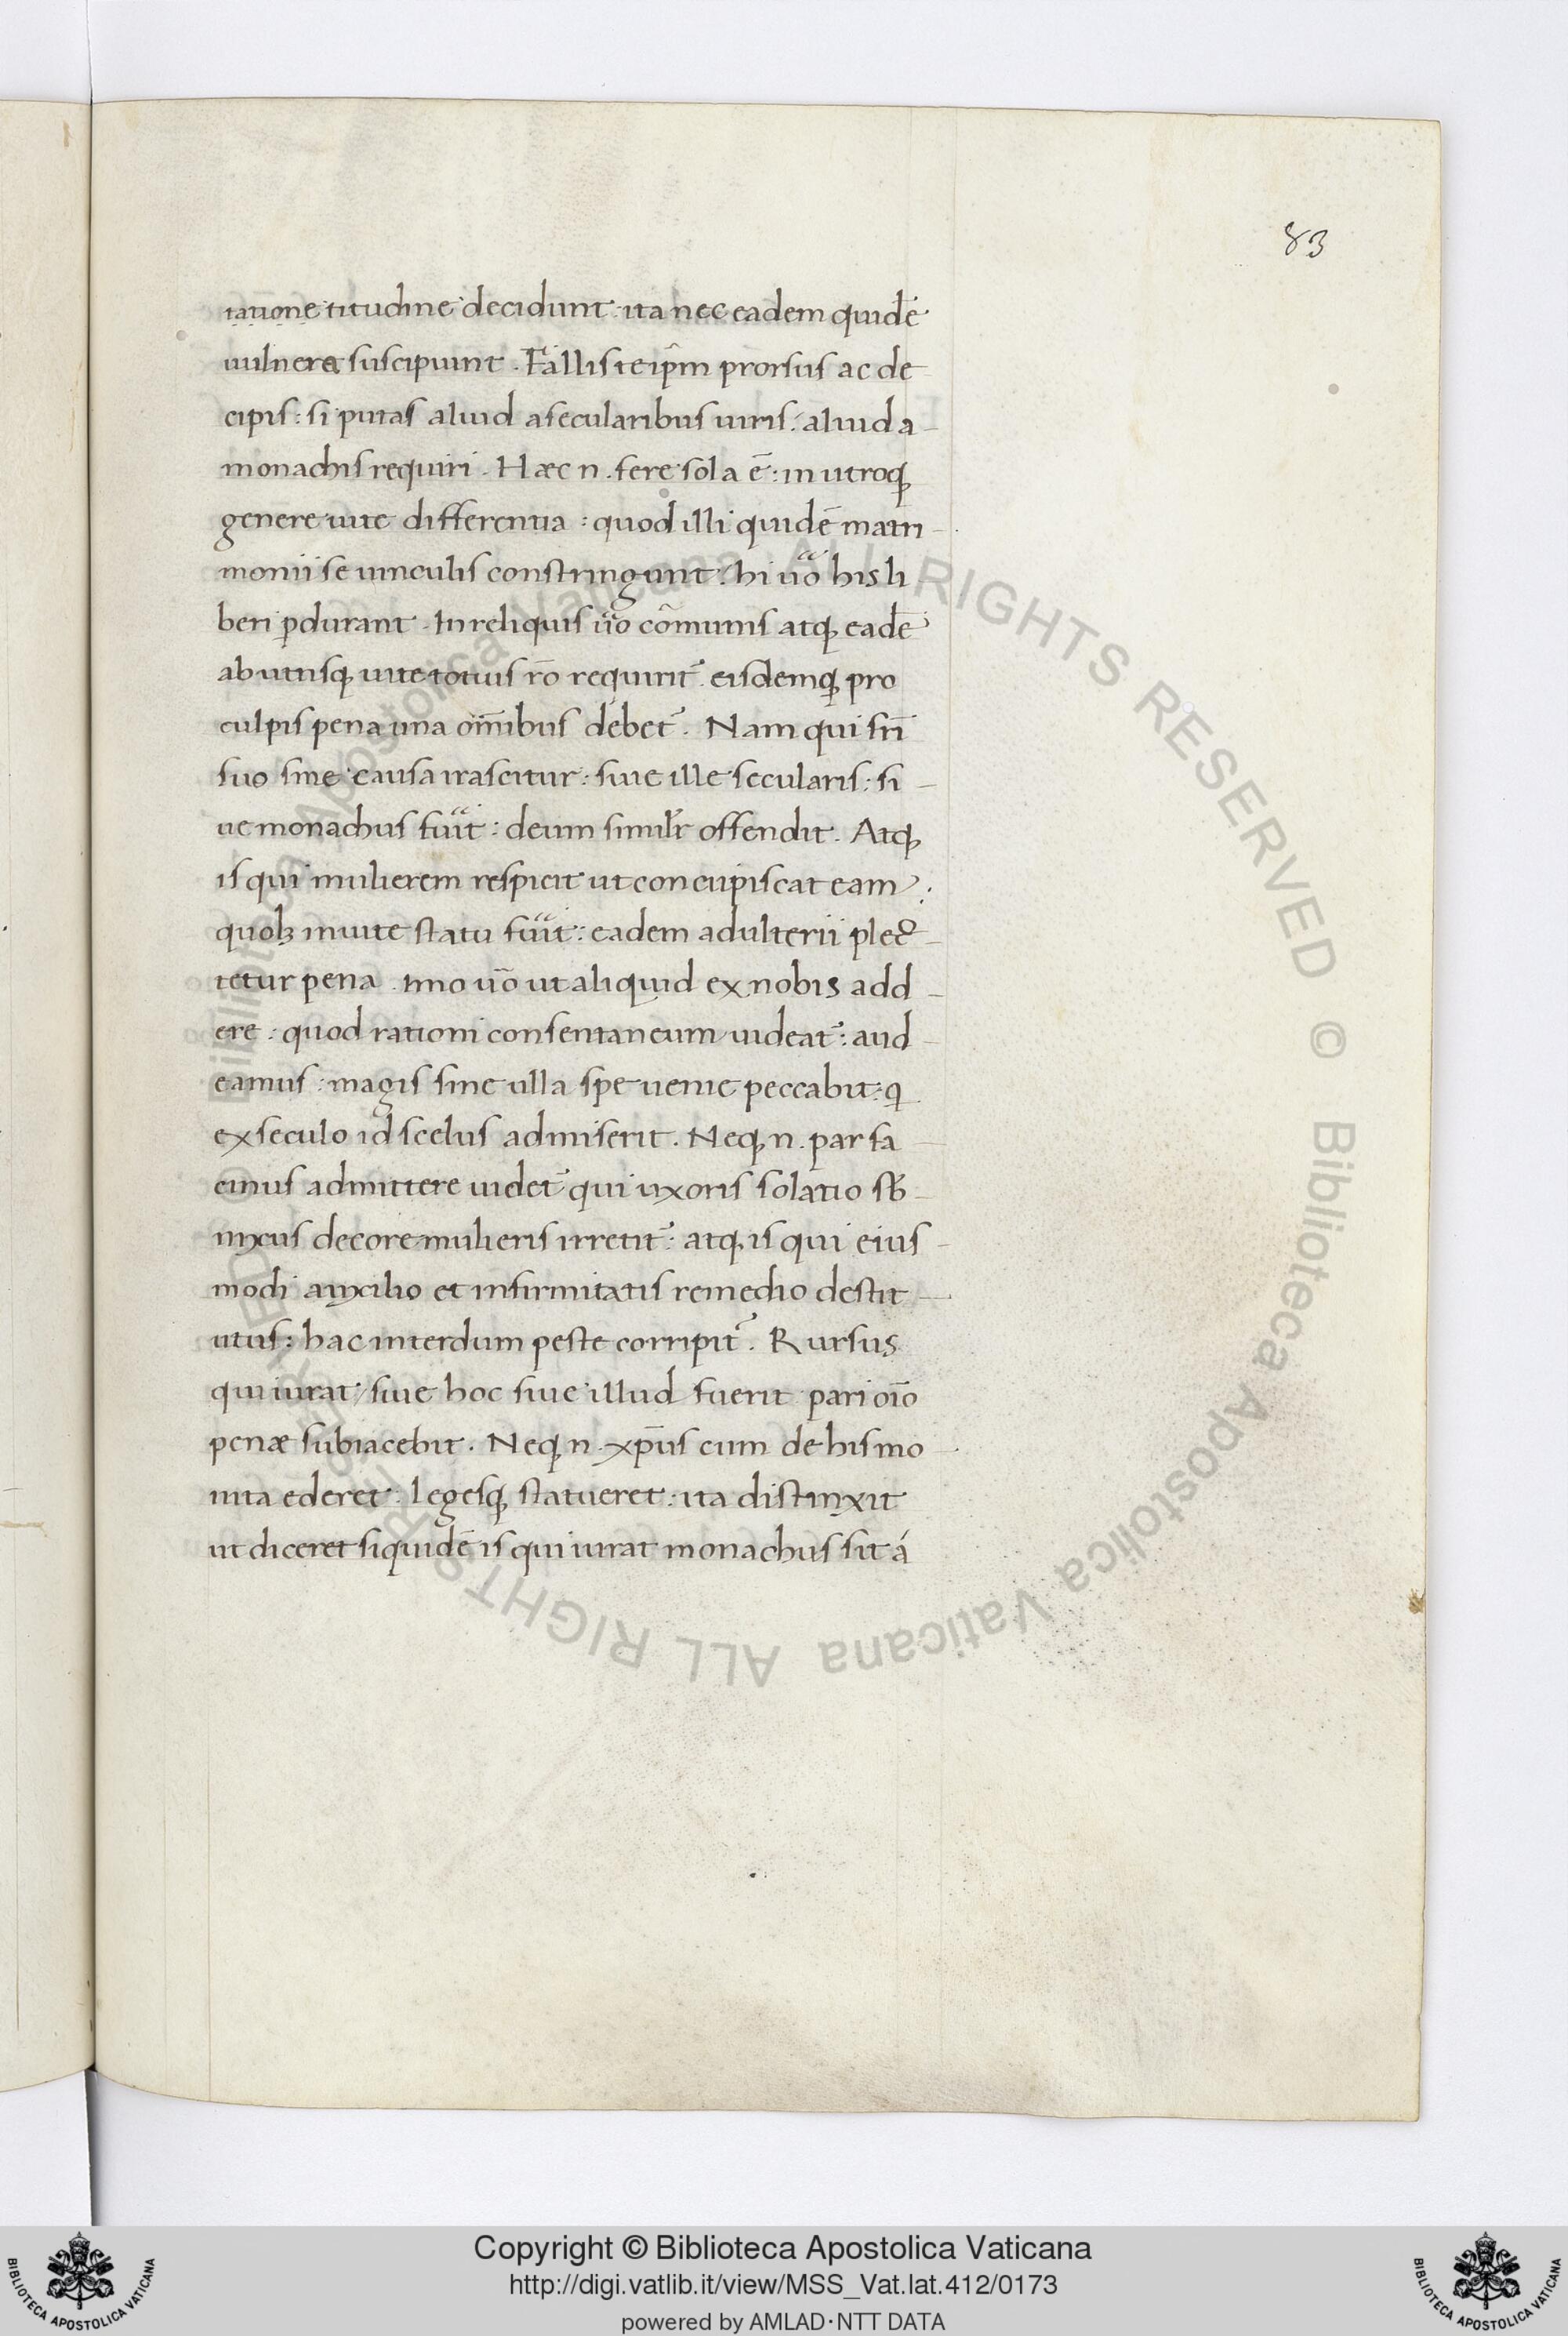 83
tatione titudine decidunt: ita nec eadem quidē
uulnera suscipiunt. Fallis te ip̄m prorsus ac de
cipis: si putas aliud a secularibus uiris: aliud a-
monachis requiri. Hæc n. fere sola ē: in utroq;
genere uite differentia: quod illi quidē matri-
monii se uinculis constringunt: hi uō his li
beri ꝑdurant. In reliquis uō cōmunis atq; eadē
ab utrisq; uite totius rō requirit᷑. eisdemq; pro
culpis pena una om̄ibus debet᷑. Nam qui fr̄i
suo sine causa irascitur: siue ille secularis: si-
ue monachus fuit: deum simil̄r offendit. Atq;
is qui mulierem respicit ut concupiscat eam:
quolꝫ in uite statu fuit: eadem adulterii plec-
tetur pena. Imo uō ut aliquid ex nobis add-
ere: quod rationi consentaneum uideat᷑: aud-
eamus: magis sine ulla spe uenie peccabit: qi
ex seculo id scelus admiserit. Neq; n. par fa-
cinus admittere uidet᷑ qui uxoris solatio sb̄-
nixus decore mulieris irretit᷑: atq; is qui eius-
modi auxilio et infirmitatis remedio destit-
utus: hac interdum peste corripit᷑. Rursus
qui iurat/ siue hoc siue illud fuerit pari oīo
penæ subiacebit. Neq; n. xp̄us cum de his mo-
nita ederet: legesq; statueret: ita distinxit
ut diceret siquidē is qui iurat monachus sit á
ALL RIGHTS RESERVED © Biblioteca Apostolica Vaticana
Copyright © Biblioteca Apostolica Vaticana
http://digi.vatlib.it/view/MSS_Vat.lat.412/0173
powered by AMLAD·NTT DATA
BIBLIOTECA APOSTOLICA VATICANA
BIBLIOTECA APOSTOLICA VATICANA